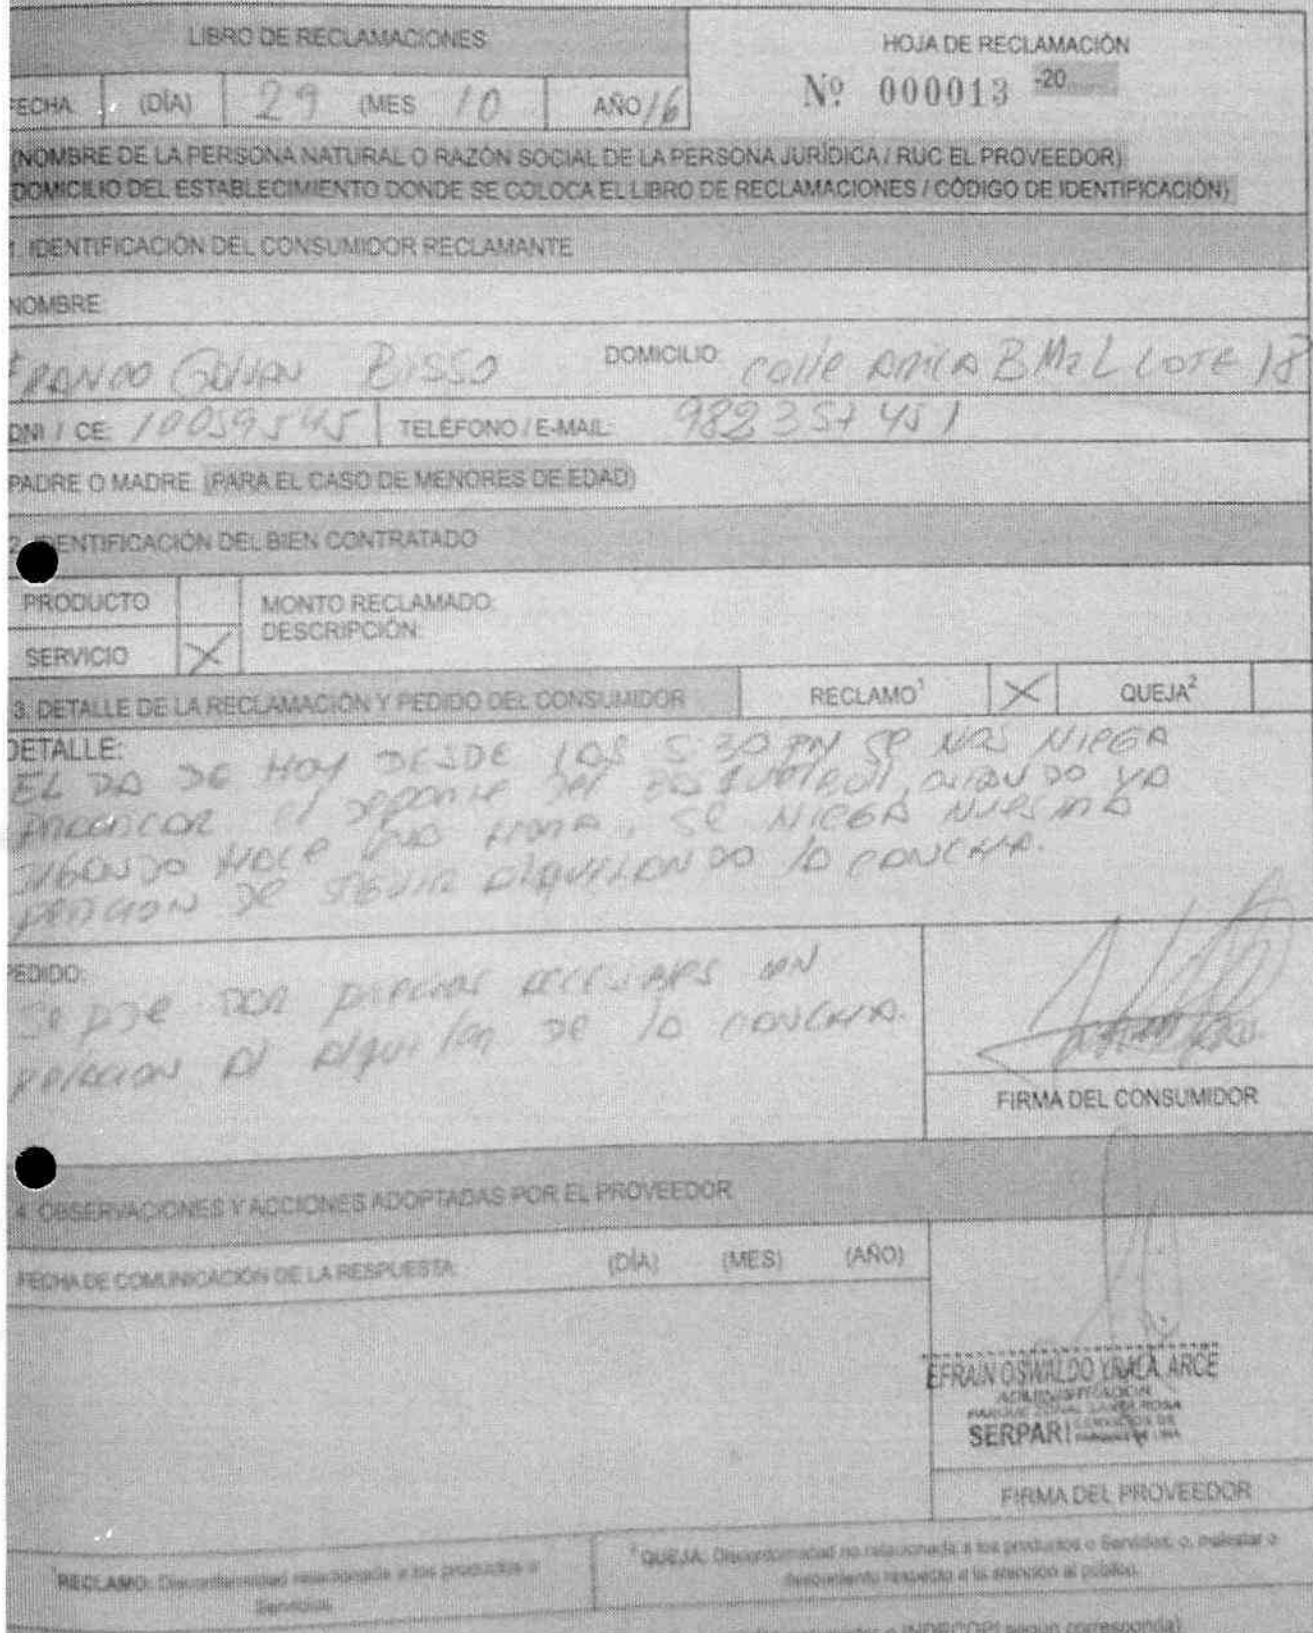 LIBRO DE RECLAMACIONES
HOJA DE RECLAMACIÓN
FECHA (DÍA) 29 (MES 10 AÑO 16
Nº 000013 -20
(NOMBRE DE LA PERSONA NATURAL O RAZÓN SOCIAL DE LA PERSONA JURÍDICA / RUC EL PROVEEDOR)
DOMICILIO DEL ESTABLECIMIENTO DONDE SE COLOCA EL LIBRO DE RECLAMACIONES / CÓDIGO DE IDENTIFICACIÓN)
1. IDENTIFICACIÓN DEL CONSUMIDOR RECLAMANTE
NOMBRE
BISSO DOMICILIO: calle ARICA B Mz L LOTE 18
DNI / CE: 10059545 TELÉFONO / E-MAIL: 982357451
PADRE O MADRE (PARA EL CASO DE MENORES DE EDAD)
2. IDENTIFICACIÓN DEL BIEN CONTRATADO
PRODUCTO MONTO RECLAMADO:
DESCRIPCIÓN:
SERVICIO X
3. DETALLE DE LA RECLAMACIÓN Y PEDIDO DEL CONSUMIDOR RECLAMO¹ X QUEJA²
DETALLE:
EL DA DE HOY DESDE LAS 5:30 PM SE NOS NIEGA
el deporte del cuando ya
hace una hora, se niega nuestra
peticion de seguir alquilando la cancha.
PEDIDO:
Se pide por precios
relacion al alquiler de la cancha.
FIRMA DEL CONSUMIDOR
4. OBSERVACIONES Y ACCIONES ADOPTADAS POR EL PROVEEDOR
FECHA DE COMUNICACIÓN DE LA RESPUESTA: (DÍA) (MES) (AÑO)
EFRAIN OSWALDO YRALA ARCE
PARQUE ZONAL SANTA ROSA
SERPAR
FIRMA DEL PROVEEDOR
¹RECLAMO: Disconformidad relacionada a los productos o
Servicios.
² QUEJA: Disconformidad no relacionada a los productos o Servicios; o, malestar o
descontento respecto a la atención al público.
INDECOPI según corresponda)